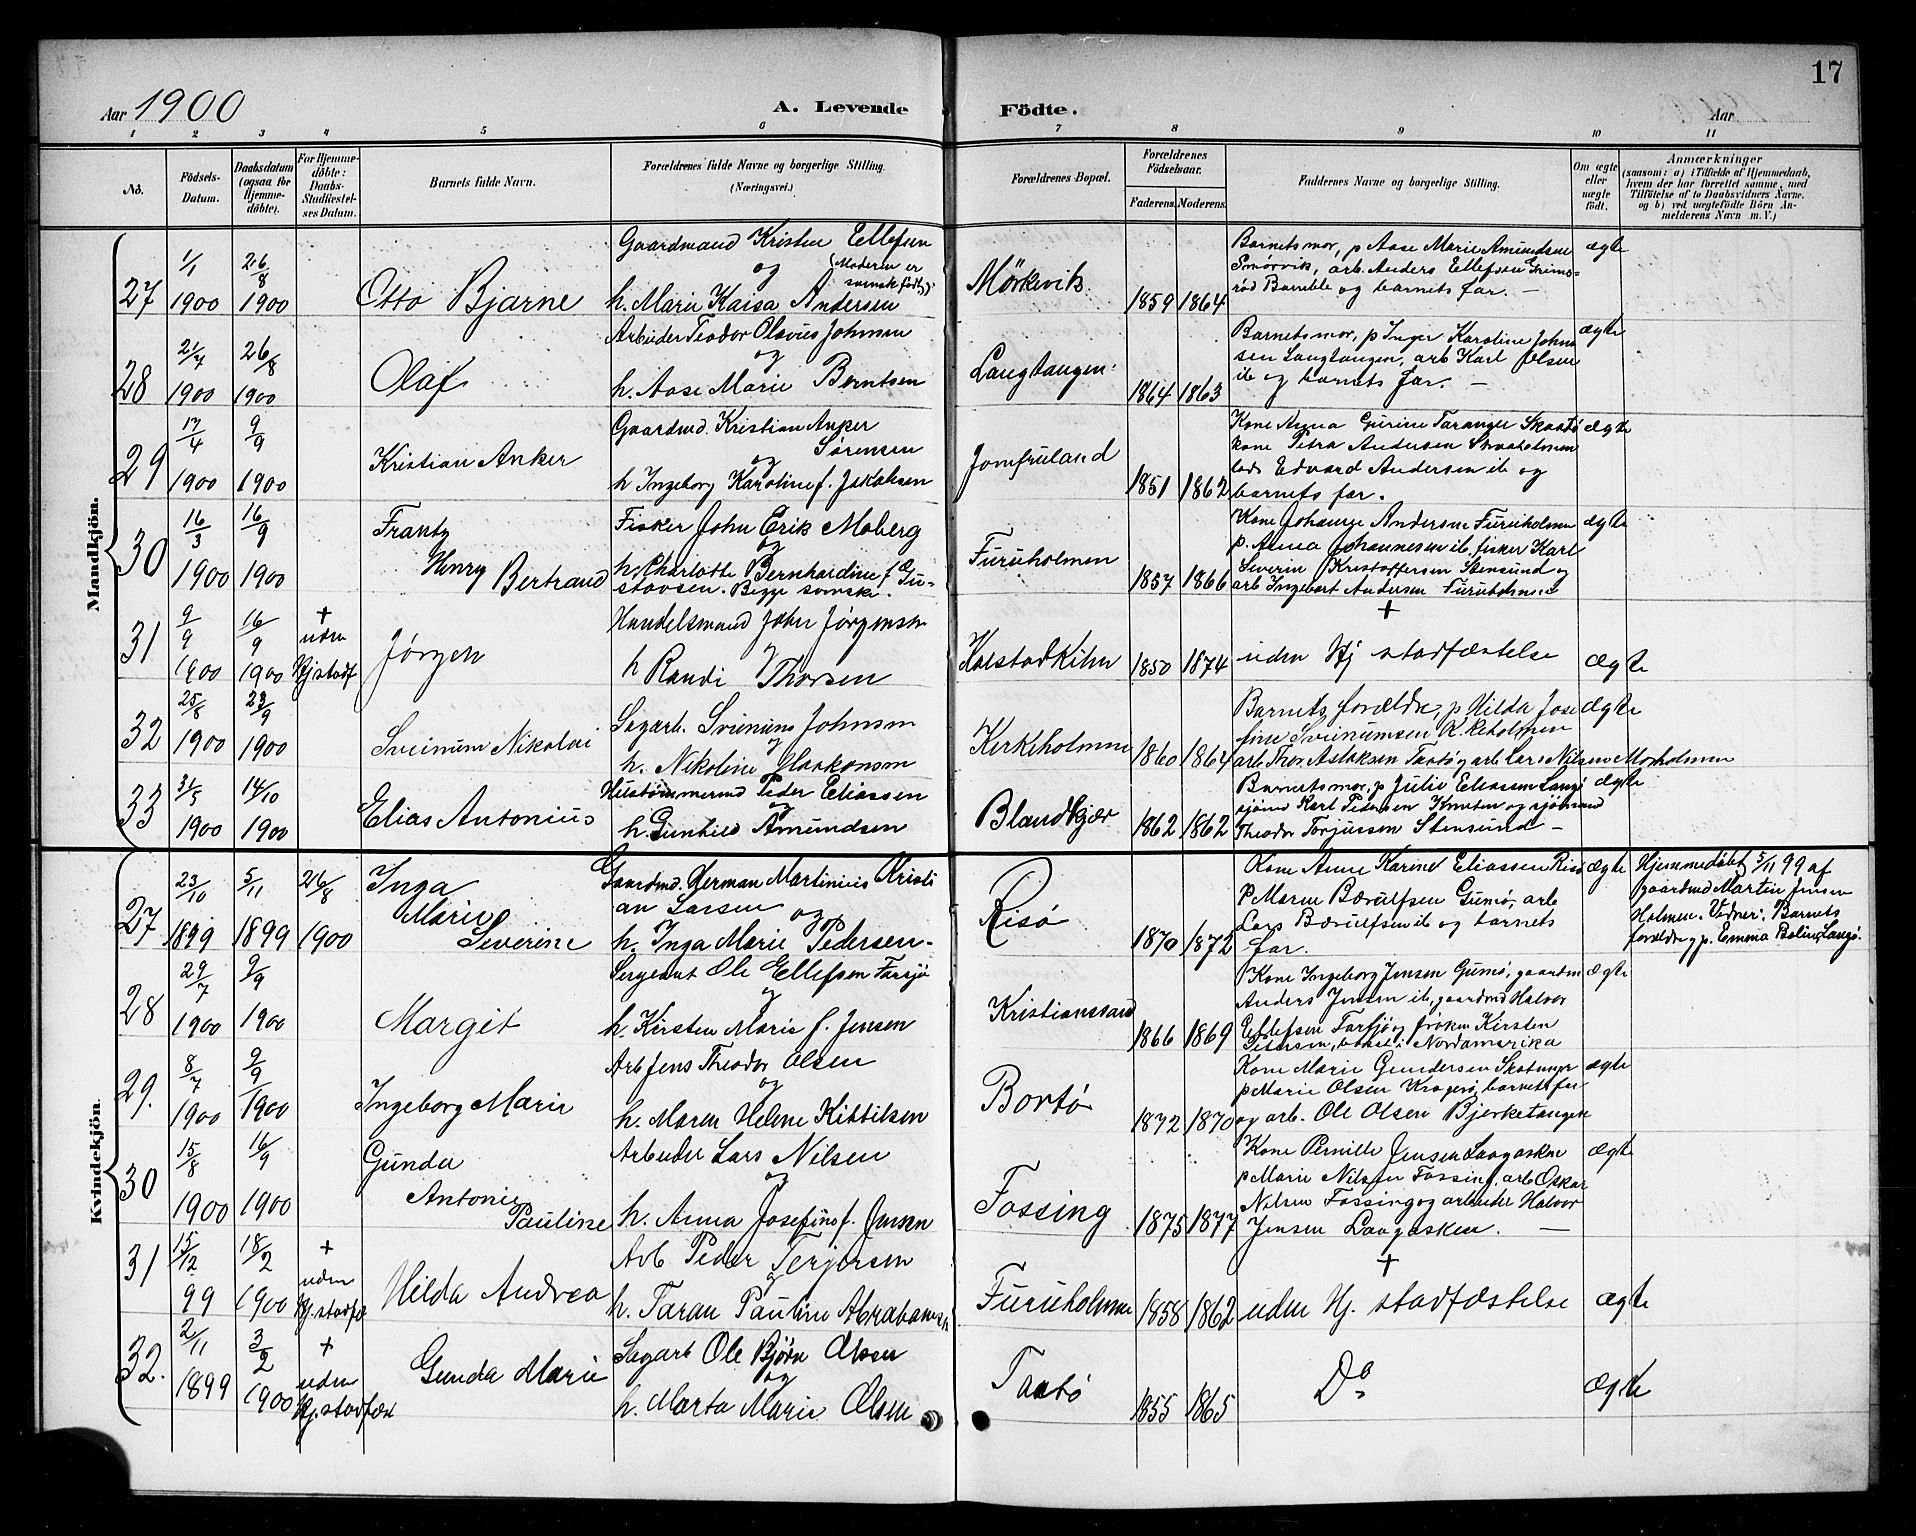 17
Aar 1900
A. Levende Födte.
Aar
1 2 3 4 5 6 7 8 9 10 11
No.
Födsels-Datum.
Daabsdatum (ogsaa for Hjemme-döbte).
For Hjemme-döbte: Daabs-Stadfæstel-ses Datum.
Barnets fulde Navn.
Forældrenes fulde Navne og borgerlige Stilling. (Næringsvei.)
Forældrenes Bopæl.
Forældrenes Födselsaar.
Faderens. Moderens.
Faddernes Navne og borgerlige Stilling.
Om ægte eller uægte födt.
Anmærkninger
(saasom: a) i Tilfælde af Hjemmedaab,
hvem der har forrettet samme, med
Tilföielse af to Daabsvidners Navne.
og b) ved uægtefödte Börn An-
melderens Navn m. V.)
Mandkjön.
27 1/1 1900 26/8 1900 Otto Bjarne
Gaardmand Kristen Ellefsen
og (Moderen er svenskfødt)
h. Marie Kaisa Andersen
Mörkevik 1859 1864
Barnets mor, p Aase Marie Amundsen
Smörvik, arb. Anders Ellefsen Grims-
rød Bamble og barnets far. —
ægte
28 21/7 1900 26/8 1900 Olaf
Arbeider Teodor Olavus Johnsen
og
h. Aase Marie Berntsen
Langtangen 1864 1863
Barnets mor, p Inger Karoline John-
sen Langtangen, arb Karl Olsen
ib og barnets far. —
ægte
29 17/4 1900 9/9 1900 Kristian Anker
Gaardmd. Kristian Anker
Sørensen
og
h Ingeborg Karoline f. Jakobsen
Jomfruland 1851 1862
Kone Anna Gurine Taranger Skaatö
kone Petra Andersen Skaaholmen
lods Edvard Andersen ib og
barnets far.
ægte
30 16/3 1900 16/9 1900 Frantz
Henry Bertrand
Fisker John Erik Moberg
og
h. Charlotte Bernhardine f Gu-
stavsen. Begge svenske.
Furuholmen 1857 1866
Kone Johanne Andersen Furuholmen
p. Anna Johannesen ib. fisker Karl
Severin Kristoffersen Stensund og
arb Ingebart Andersen Furuholmen
ægte
31 9/9 1900 16/9 1900 + uden Hj stadf Jørgen
Handelsmand John Jørgensen
og
h Randi Thorsen
1850 1874
+
uden Hj stadfæstelse
ægte
32 25/8 1900 23/9 1900 Sveinum Nikolai
Sagarb. Sveinung Johnsen
og
h. Nikoline Haakonsen
Kirkeholmen 1860 1864
Barnets forældre, p Hilda Jose
fine Sveinumsen Kirkeholmen
arb Thor Aslaksen Taatö og arb Lars Nilsen Morholmen
ægte
33 31/5 1900 14/10 1900 Elias Antonius
Hustömmermd Peder Eliassen
og
h. Gunhild Amundsen
Blandkjær 1862 1862
Barnets mor, p Julie Eliassen Langö
sjömd Karl Pedersen Knuten og sjömand
Theodor Torjussen Stensund —
ægte
Kvindekjön.
27 23/10 1899 5/11 1899 26/8 1900 Inga
Marie
Severine
Gaardmd. Herman Martinius Kristi
an Larsen og
h. Inga Marie Pedersen
Risø 1870 1872
Kone Anne Karine Eliassen Risö
p Maren Bærulfsen Gumö, arb
Lars Bærulfsen ib og barnets
far.
ægte
Hjemmedöbt 5/11 99 af
gaardmd Martin Jensen
Holmen. Vidner: Barnets
forældre og p. Emma Langö.
28 29/7 1900 9/9 1900 Margit
Sergeant Ole Ellefsen Farsjø
og
h. Kirsten Marie f. Jensen
Kristianssand 1866 1869
Kone Ingeborg Jensen Gumö, gaardm
Anders Jensen ib, gaardmd Halvor
Ellefsen Farsjø og frøken Kirsten
Petersen, bosat i Nordamerika
ægte
29. 8/7 1900 9/9 1900 Ingeborg Marie
Arb Jens Theodor Olsen
og
h. Maren Helene Kittilsen
Bortö 1872 1870
Kone Marie Gundersen
p Marie Olsen Kragerö, barnets far
og arb. Ole Olsen Bjerketangen
ægte
30 15/8 1900 16/9 1900 Gunda
Antonie
Pauline
Arbeider Lars Nilsen
og
h. Anna Josefine f. Jensen
Fossing 1875 1877
Kone Pernille Jensen Laagasken
p Marie Nilsen Fossing, arb Oskar
Nilsen Fossing og arbeider Halvor
Jensen Laagasken. —
ægte
31 15/12 99 18/2 1900 + uden Hj. stadfæ Hilda Andrea
Arb Peder Terjersen
og
h. Taran Pauline Abrahamsen
Furuholmen 1858 1862
+
uden Hj. stadfæstelse
ægte
32. 2/11 1899 3/2 1900 + uden Hj. stadfæst Gunda Marie
Sagarb Ole Bjørn Olsen
og
h. Marta Marie Olsen
Taatö 1855 1865
Do
ægte